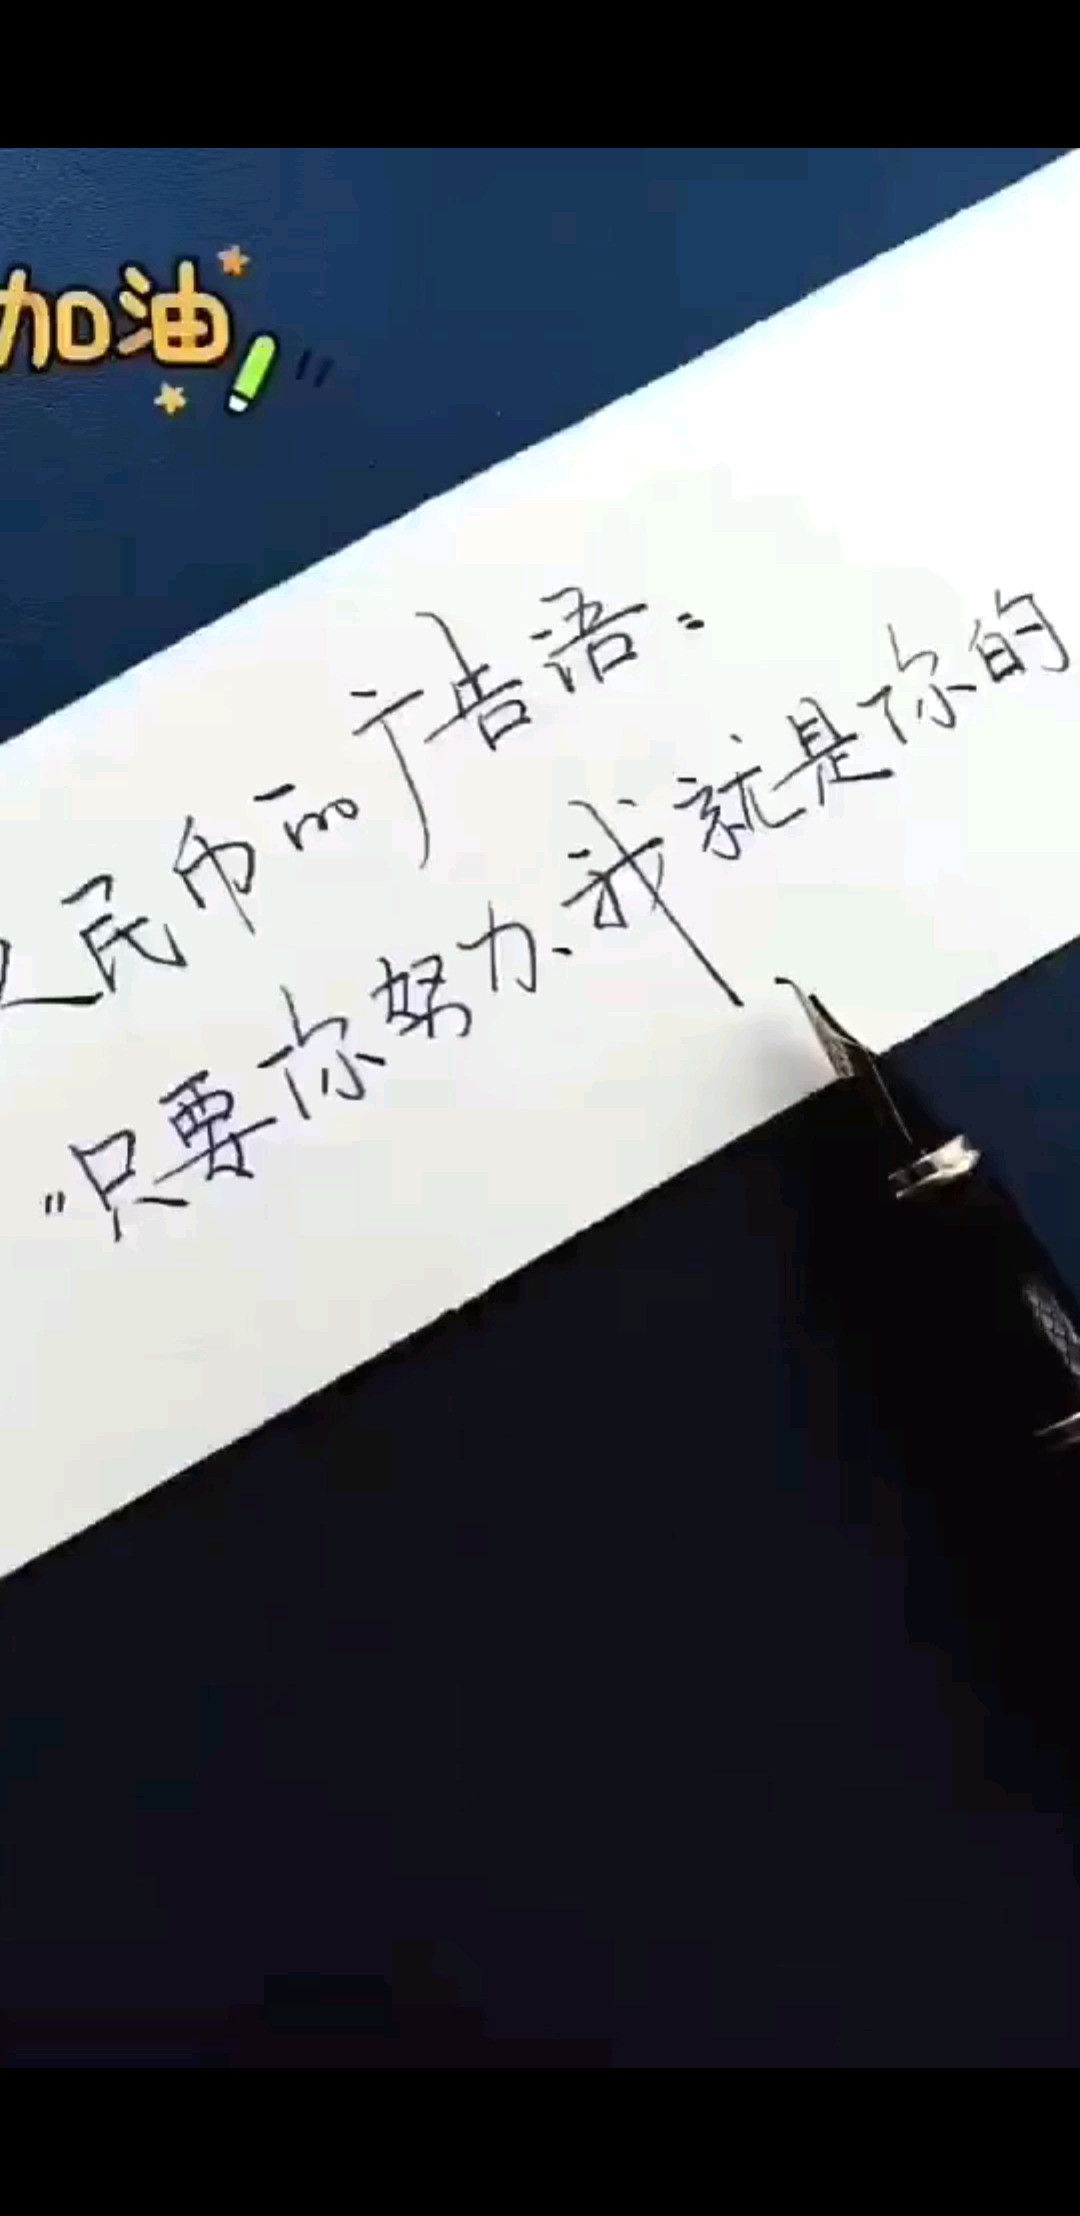 加油
人民币的广告语：
"只要你努力、我就是你的